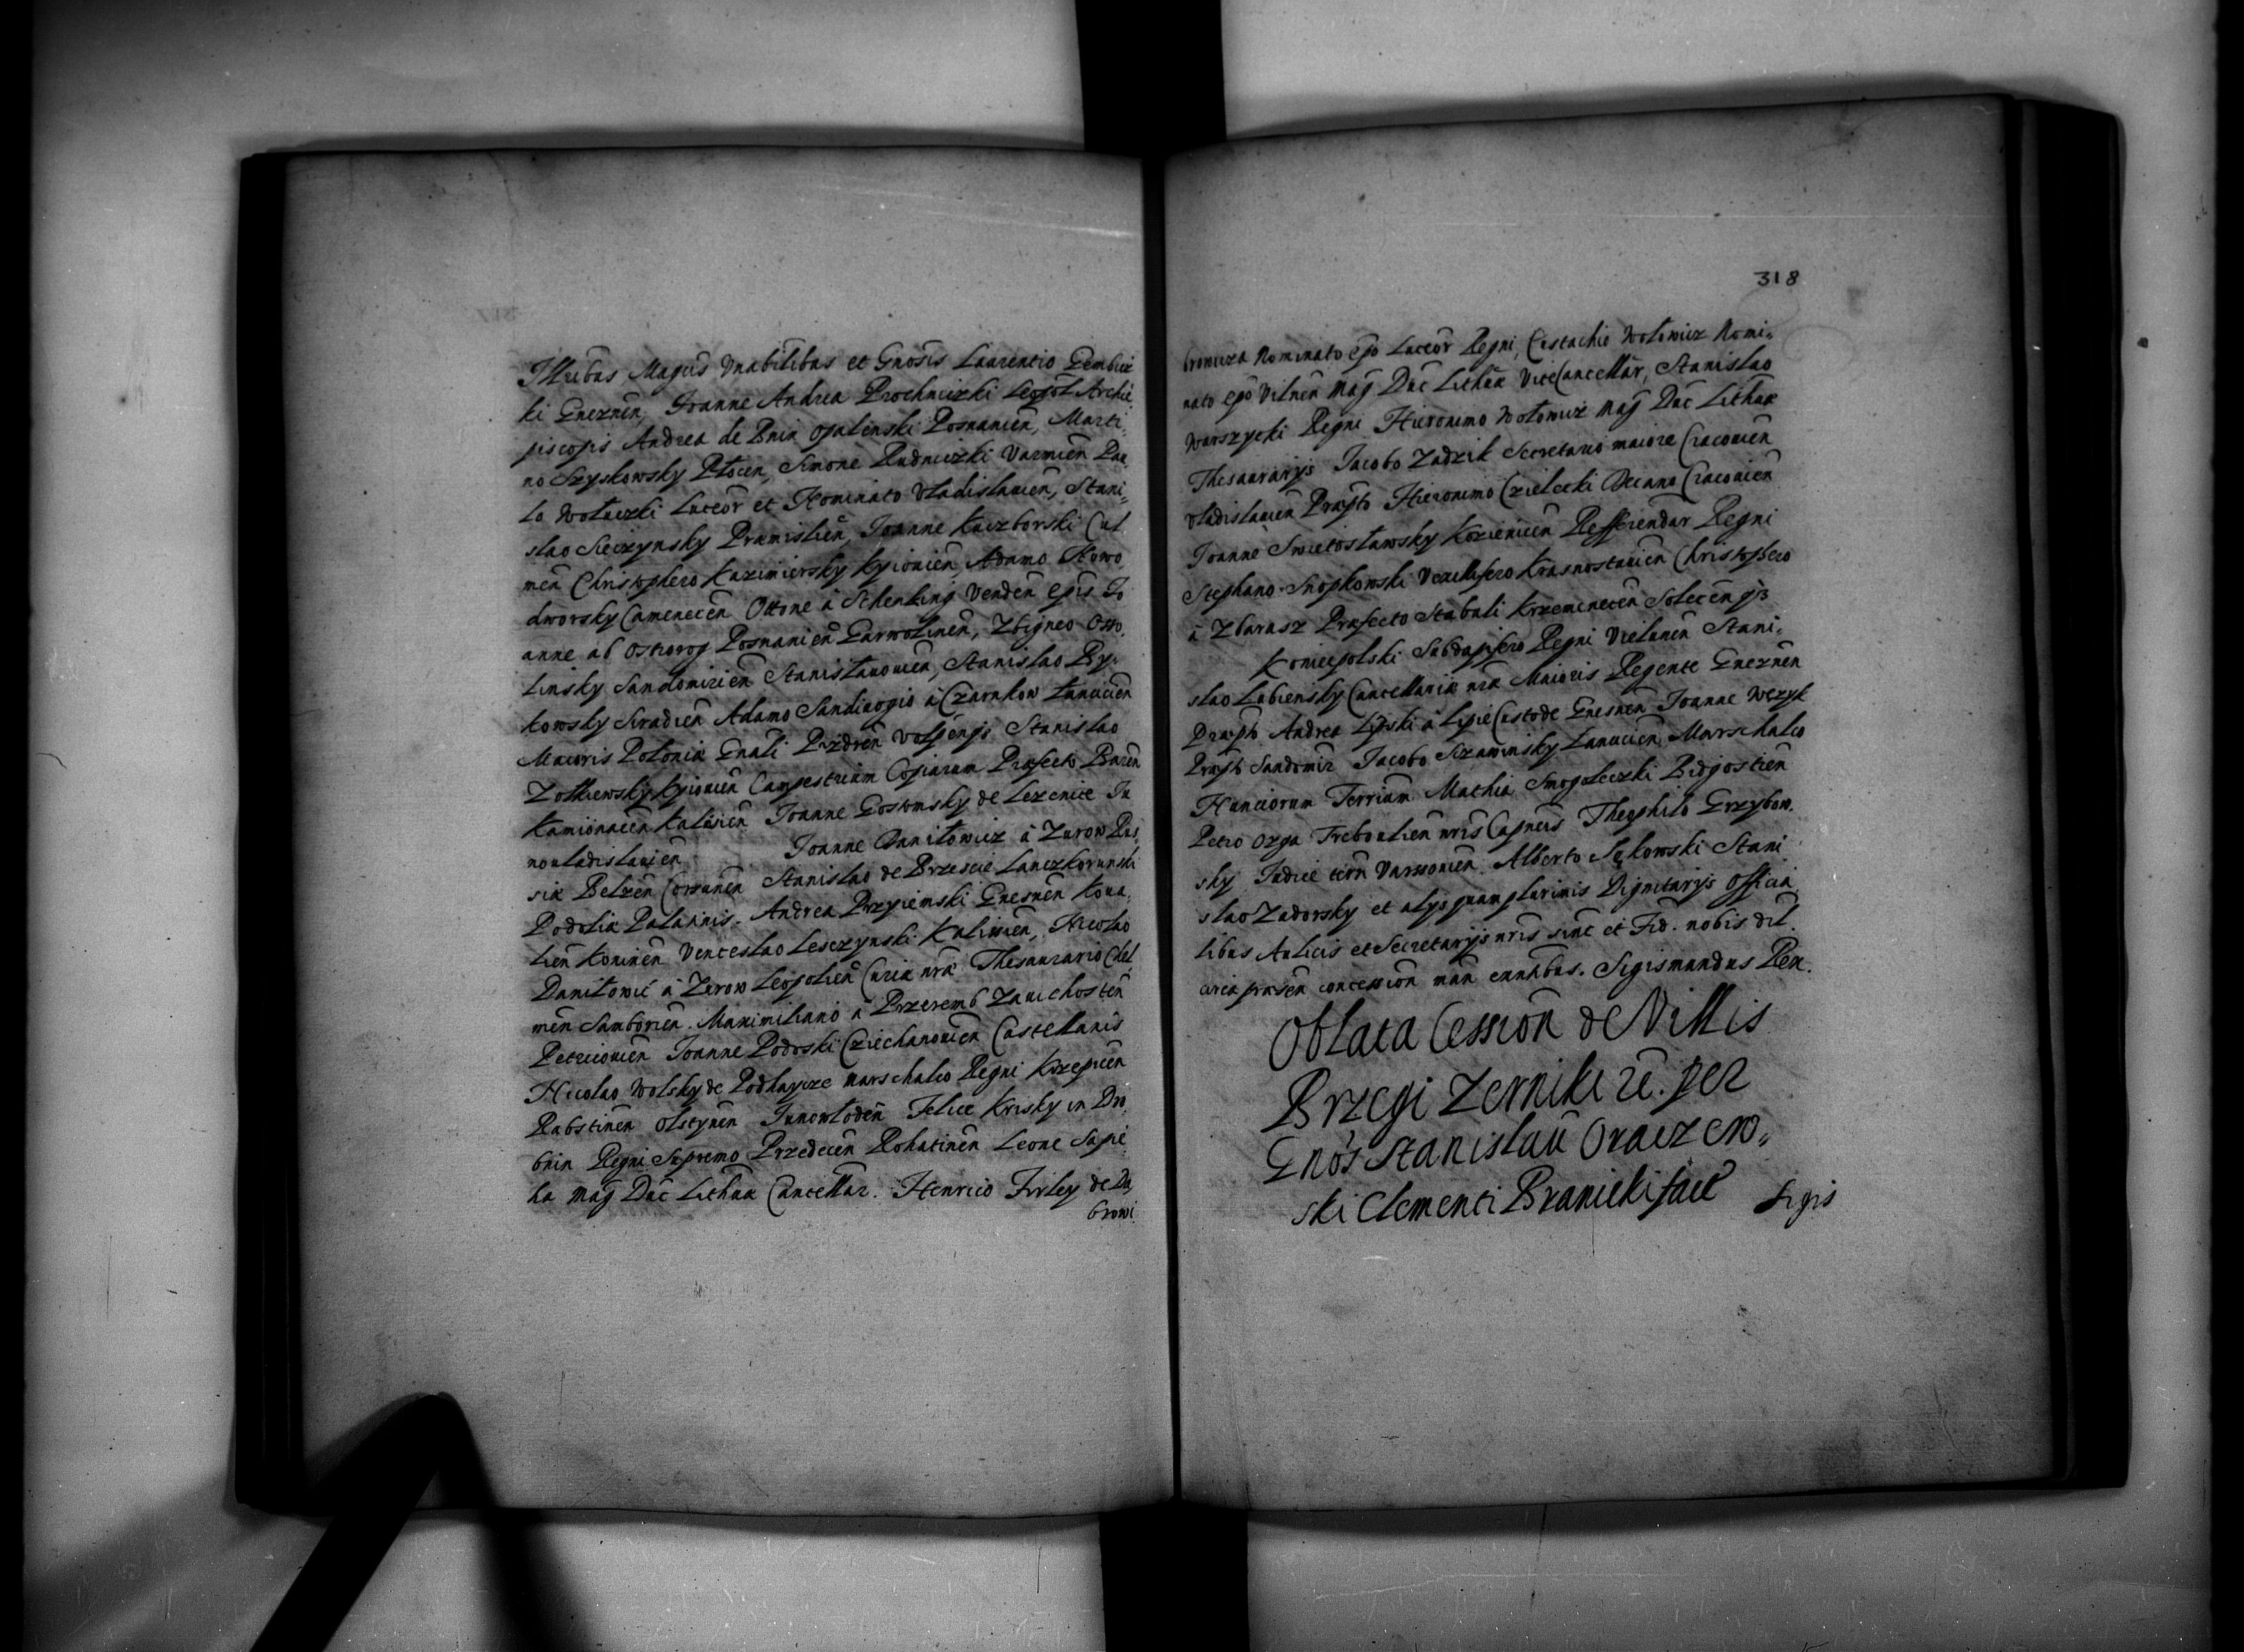 Illribus Magcis Vnabilibus et Gnosis Laurentio Gembic
ki Gneznen, Joanne Andrea Prochniczki Leopol Archie
piscopis Andrea de Bnin Opalinski Posnanien, Marti
no Szyskowsky Płocen, Simone Rudniczki Varmien Pau
lo Wołuczki Luceor et Nominato Vladislauien, Stani
slao Sieczynsky Præmislien, Joanne Kuczborski Cul
men Christophero Kazimiersky Kyiouien, Adamo Nowo
dworsky Camenecen Ottone à Schenking Venden Epis Jo
anne ab Ostrorog Posnanien Garwolinen, Zbigneo Osso
linsky Sandomirien Stanislauouien, Stanislao By
kowsky Siradien Adamo Sandiuogio à Czarnkow Łanucien
Maioris Poloniæ Gnali Pizdren Stanislao
Zołkiewsky Kyiouien Campestrium Copiarum Præfecto Baren
Kamionacen Kalusien Joanne Gostomsky de Lezenice Ju
nouladislauien Joanne Daniłowicz à Zurow Rus
siæ Belzen Corsunen Stanislao de Brzescie Lanczkorunski
Podoliæ Palatinis. Andrea Przyiemski Gnesnen Koua
lien Koninen Venceslao Lesczynski Kalissien, Nicolao
Daniłowic à Zurow Leopolien Curiæ nræ Thesaurario Chel
men Samborien. Maximiliano à Przeremb Zauichosten
Petricouien Joanne Podoski Cziechanouien Castellanis
Nicolao Wolsky de Podhaycze Marschalco Regni Krzepicen
Rabstinen Olstynen Junowłoden Felice Krisky in Dro
bnin Regni Supremo Przedecen Rohatinen Leone Sapie
ha Mag Duc Lithuæ Cancellar. Henrico Firley de Da
browi
318
browiza Nominato Epo Luceor Regni, Eustachio Wołowicz Nomi
nato Epo Vilnen Mag Duc Lithuæ ViceCancellar, Stanislao
Warszycki Regni Hieronimo Wołowicz Mag Duc Lithuæ
Thesaurarijs Jacobo Zadzik Secretario maiore Cracouien
Vladislauien Præpto Hieronimo Czielecki Decano Cracouien
Joanne Swietosławsky Kozienicen Refferendar Regni
Stephano Snopkowski Vexillifero Krasnostauien Christophero
à Zbarasz Præfecto Stabuli Krzemenecen Solecen
Koniecpolski Subdapifero Regni Vielunen Stani
slao Lubiensky Cancellariæ nræ Maioris Regente Gneznen
Præpto Andrea Lipski à Lipie Custode Gnesnen Joanne Wezyk
Præpto Sandomir Jacobo Sczawinsky Łanucien Marschalco
Nunciorum Terrium Mathia Smoguleczki Bidgostien
Petro Ozga Treboulien nris Capneis Theophilo Grzybow
sky Judice tern Varssouien Alberto Sękowski Stani
slao Zadorsky et alijs quamplurimis Dignitarijs Officia
libus Aulicis et Secretarijs nris sinc et Fid. nobis dil.
circa præsen concession man enntibus. Sigismundus Rex.
Oblata Cession de Villis
Brzegi Zerniki rc. per
Gnos Stanislau Oraczew
ski Clementi Branicki fact
Sigis